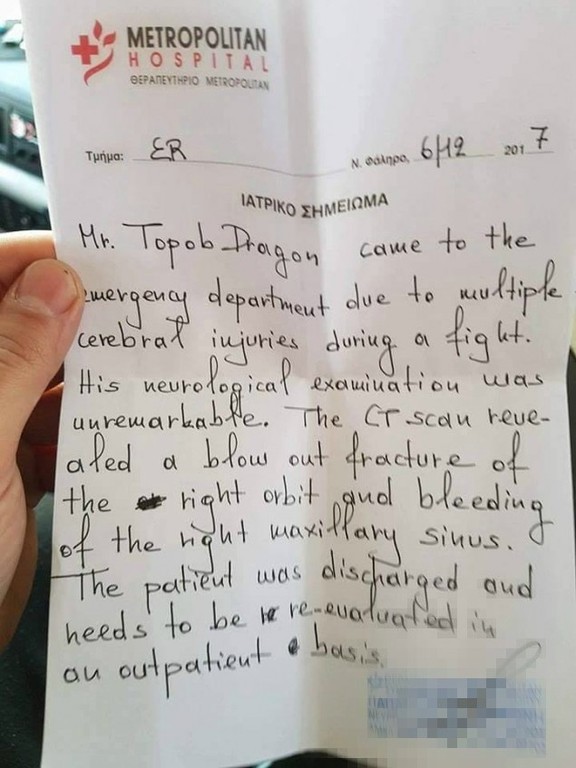 METROPOLITAN
HOSPITAL
ΘΕΡΑΠΕΥΤΗΡΙΟ METROPOLITAN
Τμήμα: ER Ν. Φάληρο, 6/12 2017
ΙΑΤΡΙΚΟ ΣΗΜΕΙΩΜΑ
Mr. Topob Dragon came to the
emergency department due to multiple
cerebral injuries during a fight.
His neurological examination was
unremarkable. The CT scan reve-
aled a blow out fracture of
the right orbit and bleeding
of the right maxillary sinus.
The patient was discharged and
needs to be re-evaluated in
an outpatient basis.